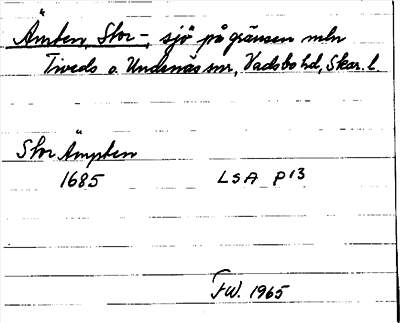 Ämten, Stor-, sjö på gränsen mln
Tiveds o. Undenäs snr, Vadsbo hd, Skar. l.
Stor Ämpten
1685 LSA P13
F.W. 1965